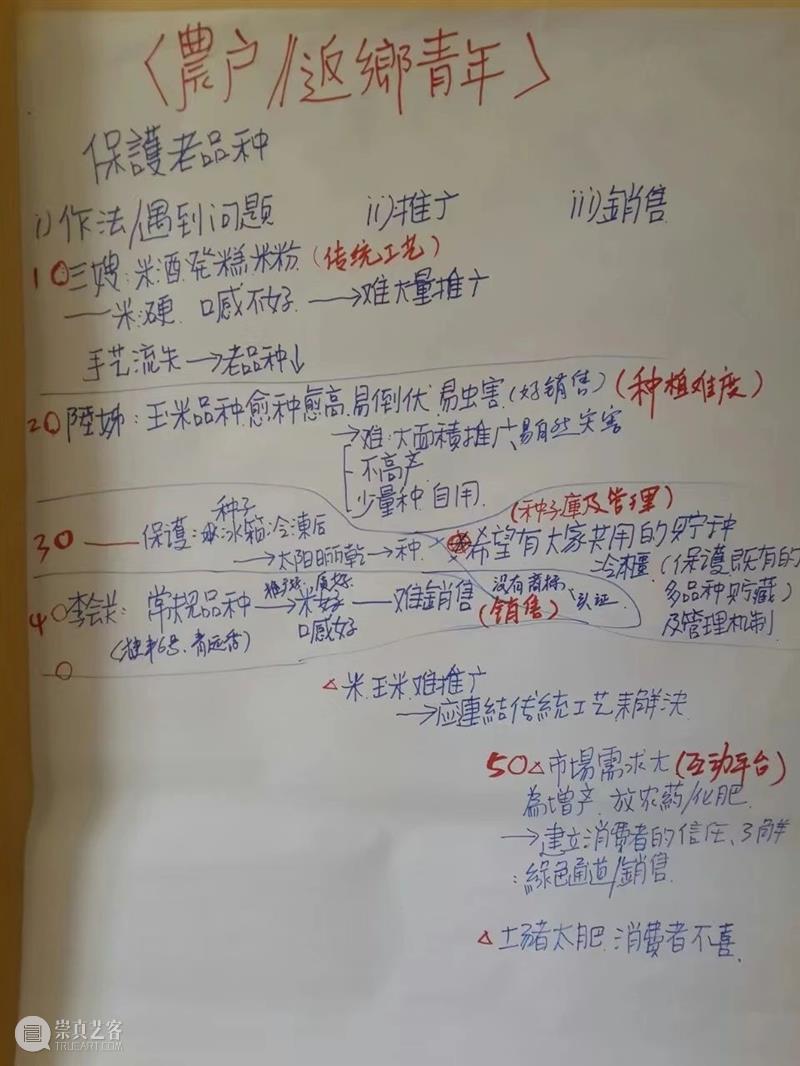 〈農户//返鄉青年〉
保護老品种
i)作法/遇到问题 ii)推广 iii)銷售
1○三嫂:米酒.発糕.米粉(传统工艺)
——米:硬.口感不好.→难大量推广
手艺流失→老品种↓
2○陸姊:玉米品种愈种愈高.易倒伏.易虫害(好销售)(种植难度)
→难:大面積推广、易自然灾害
不高产.
少量种.自用.
3○——保護:冰箱冷凍后 种子 (种子庫及管理)
→太阳晒乾→种.希望有大家共用的貯种
冷凍櫃(保護既有的
多品种貯藏)
及管理机制.
4○李会长:常規品种→米好——难銷售 没有商标、认证.
口感好 (销售)
○
△米.玉米难推广
→应連結传統工艺来解決.
5○△市場需求大(互动平台)
為增产.放农药/化肥.
→建立消費者的信任、了解
:綠色通道/銷售.
△土豬太肥.消費者不喜.
崇真艺客
TRUEART.COM